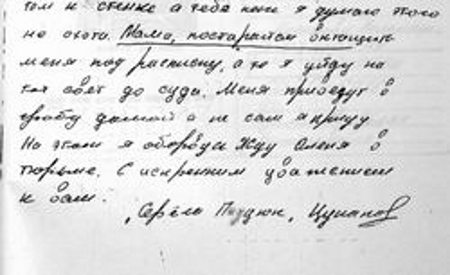 том к стенке а тебя пока я думаю этого
не охота. Мама, постарайтесь оттащить
меня под расписку, а то я уйду на
тот свет до суда. Меня привезут в
гробу домой а не сам я приду
На этом я оборвусь Жду Олега в
тюрьме. С искренним уважением
к вам.
Серёга Поздюк, Цуканов